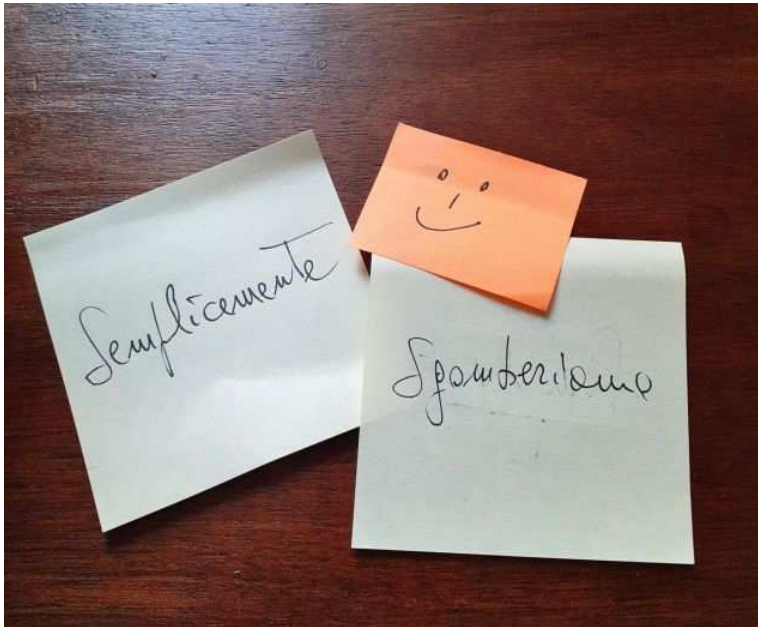 Semplicemente
Sgomberiamo